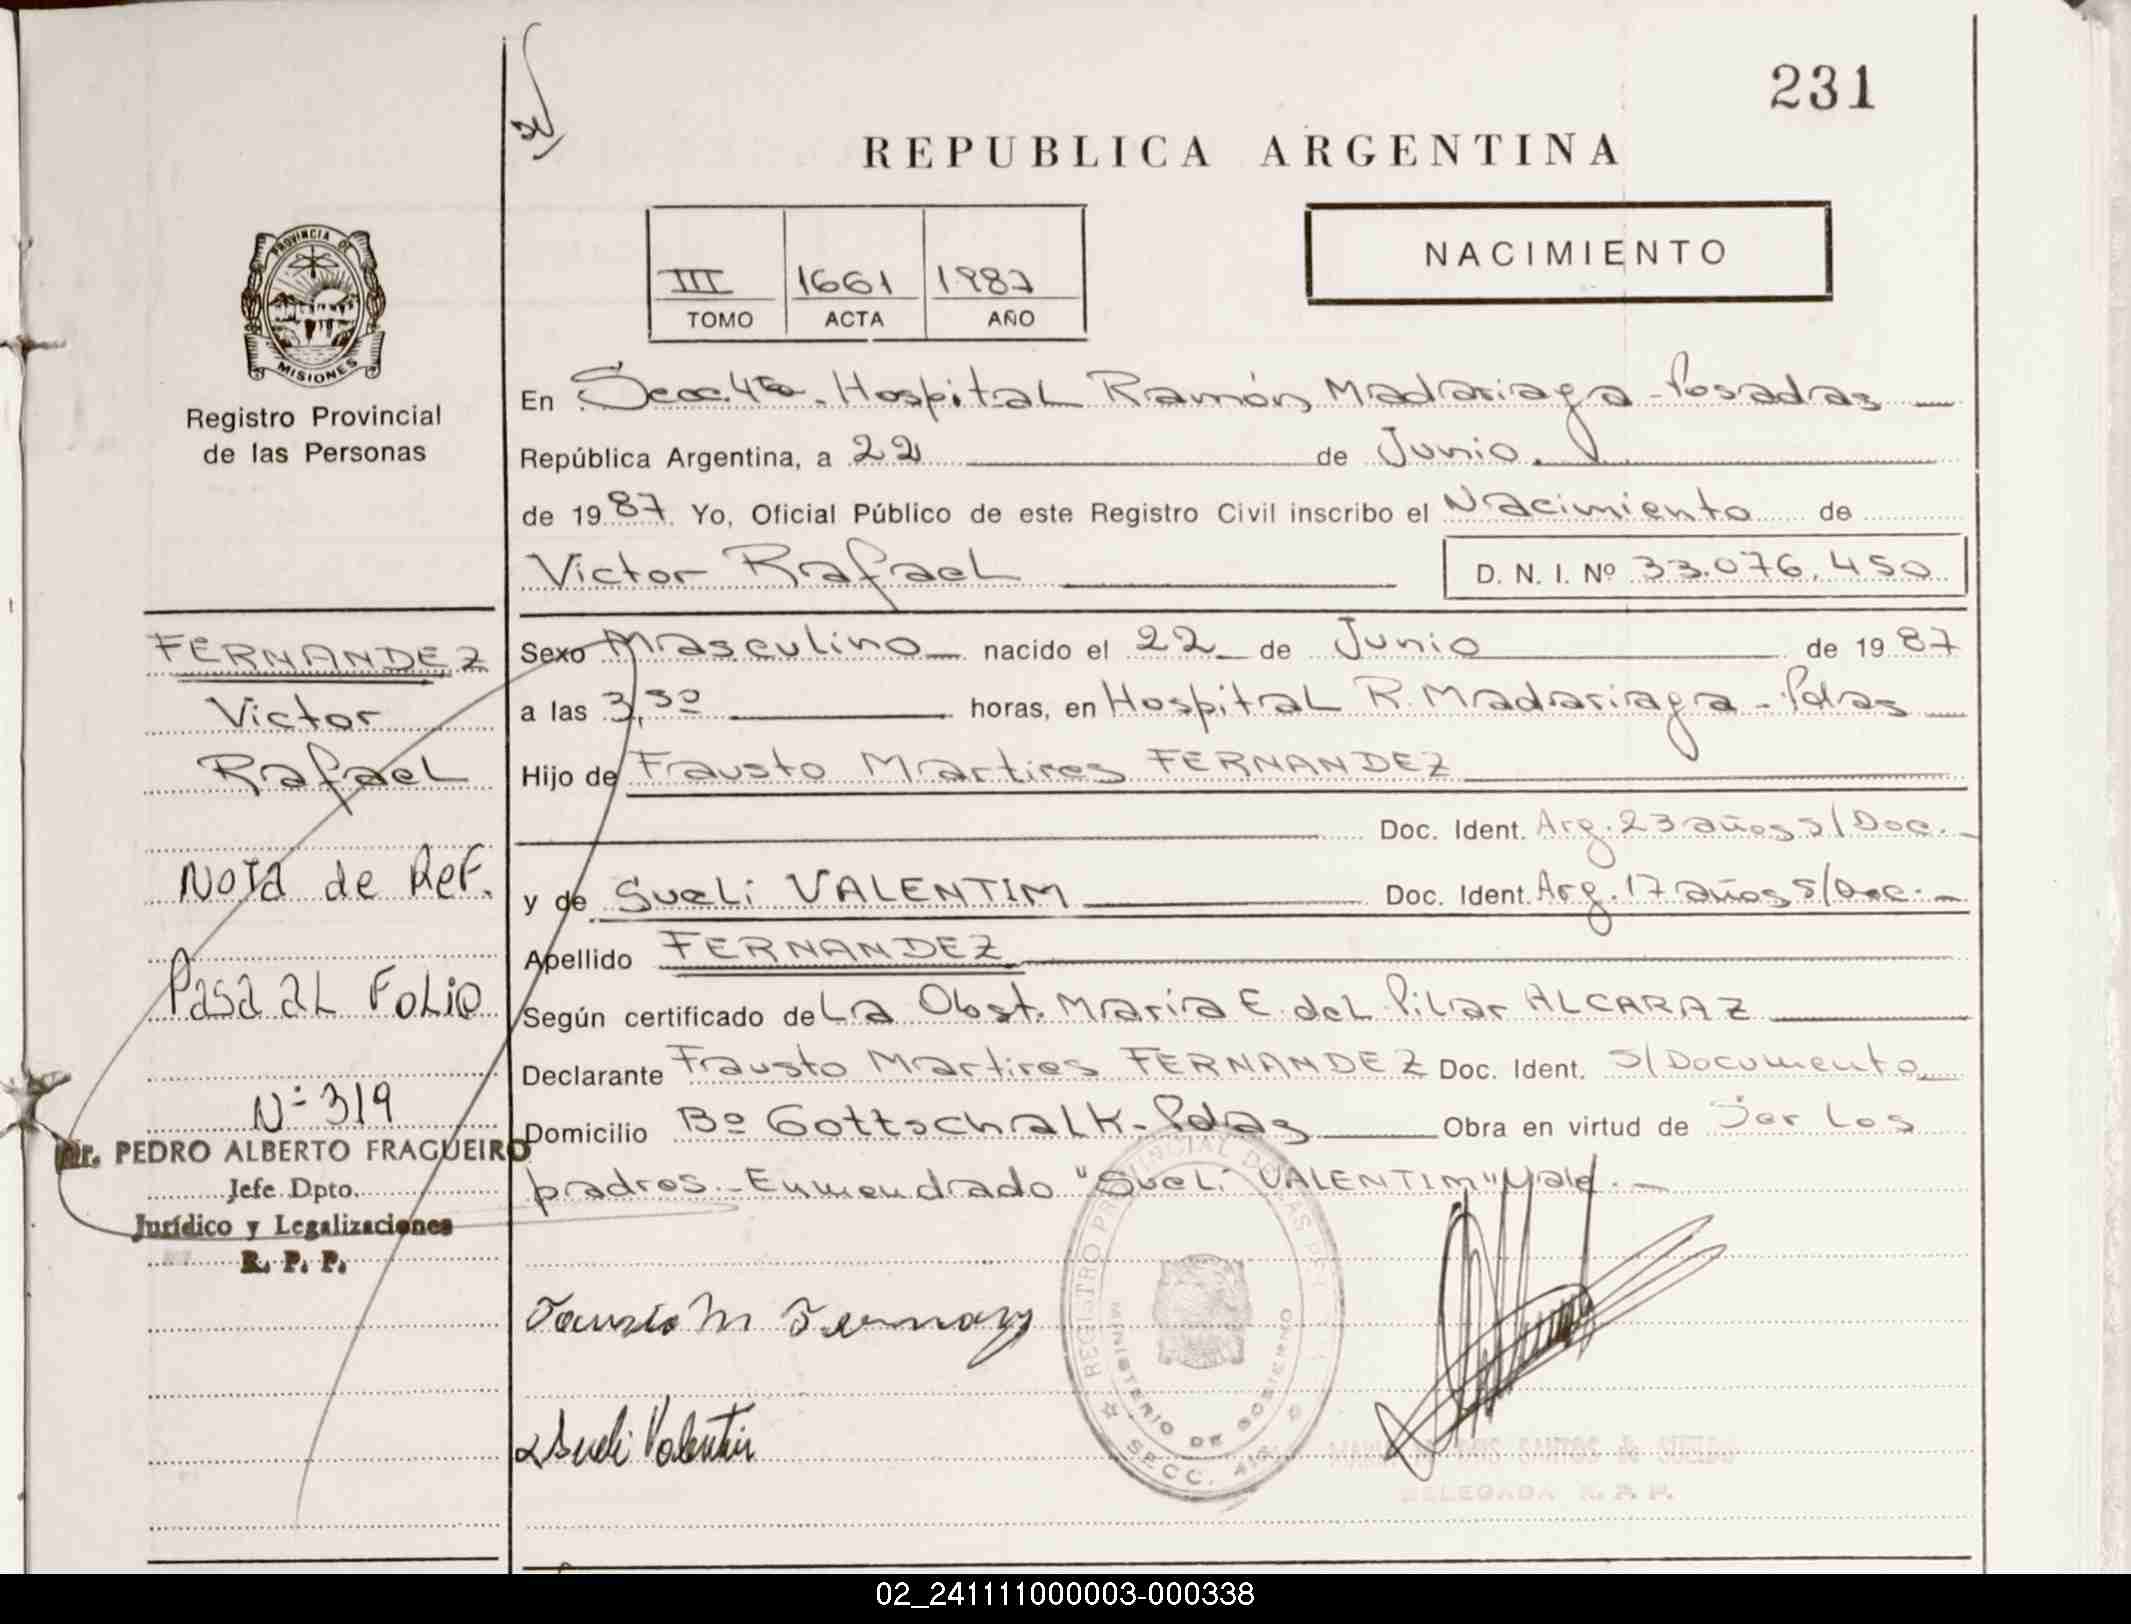 231
REPUBLICA ARGENTINA
III 1661 1987
TOMO ACTA AÑO
NACIMIENTO
PROVINCIA DE
MISIONES
Registro Provincial
de las Personas
FERNANDEZ
Victor
Rafael
Nota de Ref.
Pasa al Folio
Nº 319
Dr. PEDRO ALBERTO FRAGUEIRO
Jefe Dpto.
Jurídico y Legalizaciones
R. P. P.
En Secc. 4ta - Hospital Ramón Madariaga - Posadas
República Argentina, a 22 de Junio
de 1987 Yo, Oficial Público de este Registro Civil inscribo el Nacimiento de
Victor Rafael D. N. I. Nº 33.076.450
Sexo Masculino nacido el 22 de Junio de 1987
a las 3,30 horas, en Hospital R. Madariaga - Pdas
Hijo de Fausto Martires FERNANDEZ
Doc. Ident. Arg. 23 años s/Doc.
y de Sueli VALENTIM Doc. Ident. Arg. 17 años s/Doc.
Apellido FERNANDEZ
Según certificado de La Obst. María E. del Pilar ALCARAZ
Declarante Fausto Martires FERNANDEZ Doc. Ident. S/Documento
Domicilio Bº Gottschalk - Pdas Obra en virtud de Ser los
padres. - Enmendrado "Sueli VALENTIM" Vale. -
REGISTRO PROVINCIAL DE LAS
MINISTERIO DE GOBIERNO
SECC. 4ta
Fausto M
Sueli Valentin
SANTOS de
DELEGADA R. P. P.
02_241111000003-000338